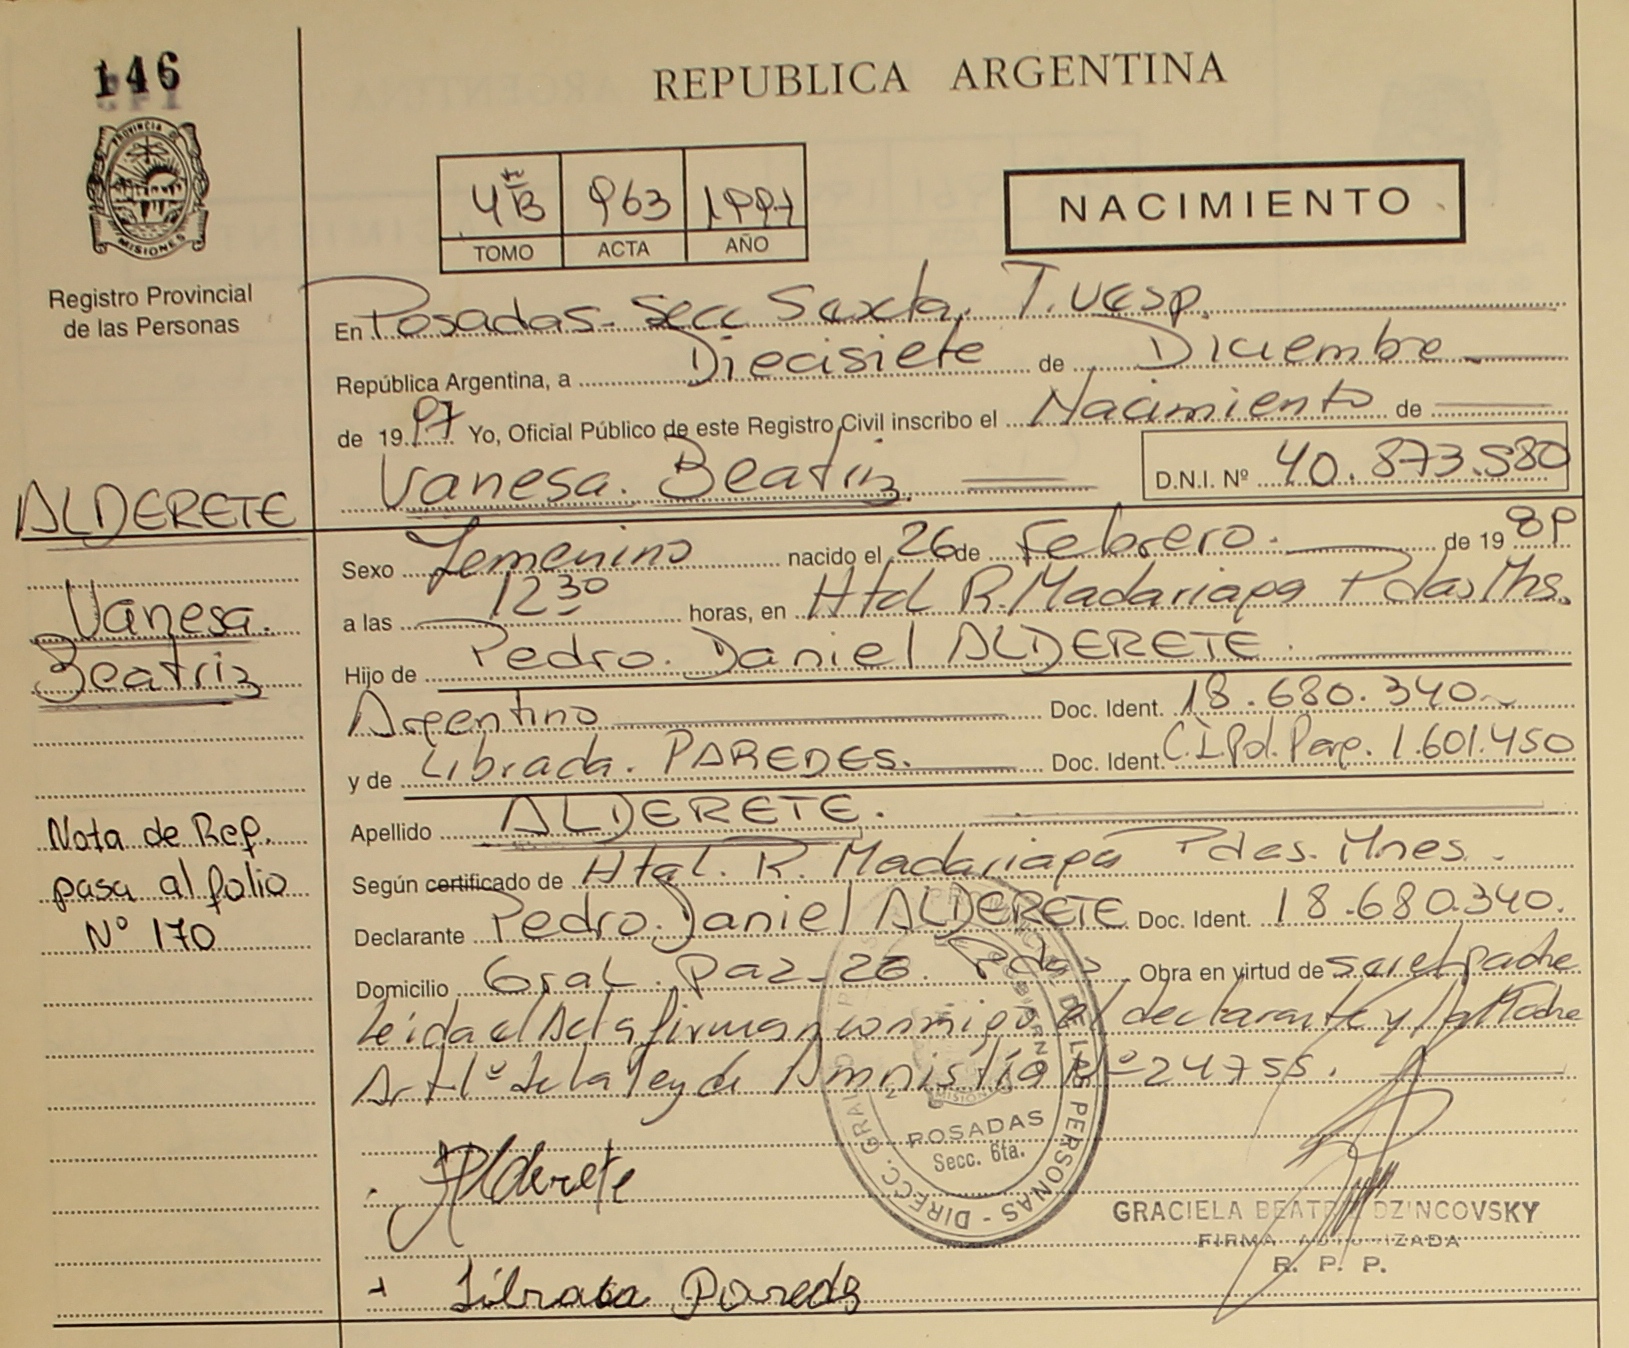 146
PROVINCIA DE
MISIONES
Registro Provincial
de las Personas
REPUBLICA ARGENTINA
4º B 963 1997
TOMO ACTA AÑO
NACIMIENTO
En Posadas - Secc Sexta. T. Vesp.
República Argentina, a Diecisiete de Diciembre
de 1997 Yo, Oficial Público de este Registro Civil inscribo el Nacimiento de
Vanesa. Beatriz D.N.I. Nº 40.873.580
ALDERETE
Vanesa.
Beatriz
Nota de Ref.
pasa al folio
Nº 170
Sexo Femenino nacido el 26 de Febrero. de 1989
a las 12 30 horas, en Htal R. Madariaga Pdas Mns.
Hijo de Pedro. Daniel ALDERETE.
Argentino Doc. Ident. 18.680.340
y de Librada. PAREDES. Doc. Ident. C.I. Pol. Parag. 1.601.450
Apellido ALDERETE.
Según certificado de Htal. R. Madariaga Pdas. Mnes.
Declarante Pedro. Daniel ALDERETE Doc. Ident. 18.680.340.
Domicilio Gral. Paz - 26. Pdas Obra en virtud de ser el padre
Leida el Acta firman conmigo el declarante y la Madre
Art 1º de la ley de Amnistía Nº 24755.
DIRECC. GRAL DE LAS PERSONAS
MISIONES
POSADAS
Secc. 6ta.
Alderete
GRACIELA BEATRIZ DZINCOVSKY
FIRMA AUTORIZADA
R. P. P.
Librada Paredes